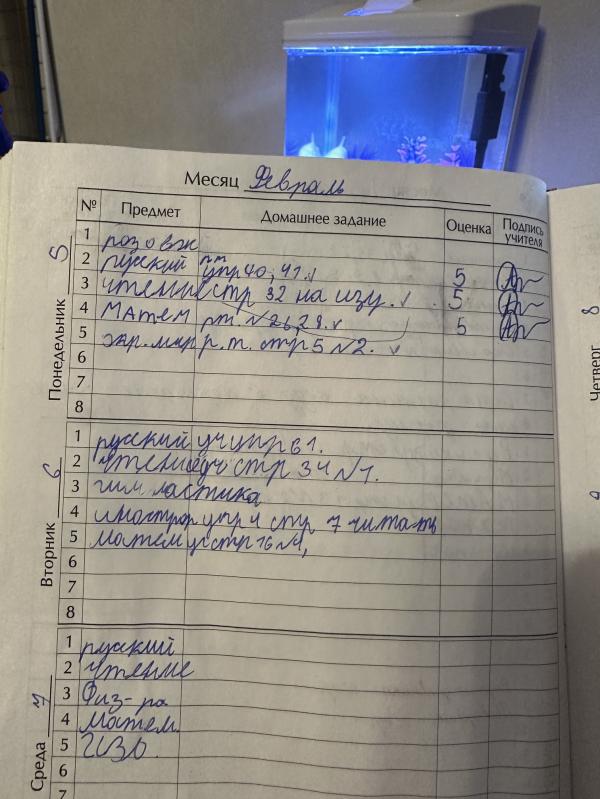 Месяц Февраль
№ Предмет Домашнее задание Оценка Подпись учителя
Понедельник 5
1 розовж
2 русский рт упр 40, 41. 5
3 чтение стр 32 на изу. 5
4 МАтем рт. №26,28. 5
5 окр. мир р.т. стр 5 №2.
6
7
8
Вторник 6
1 русский уч упр 61.
2 чтение уч стр 34 №1.
3 гим ластика
4 иностр упр 4 стр 7 читать
5 матем уч стр 16 №4,
6
7
8
Среда 7
1 руский
2 чтение
3 Физ-ра
4 матем.
5 ИЗО
6
7
Четверг 8